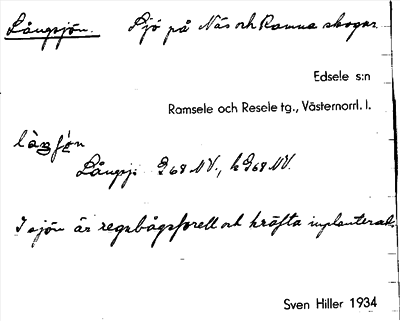 Långsjön. Sjö på Näs och Ramna skogar.
Edsele s:n
Ramsele och Resele tg., Västernorrl. l.
Långsj. G68 NV., k G68 NV.
I sjön är regnbågsforell och kräfta inplanterade.
Sven Hiller 1934